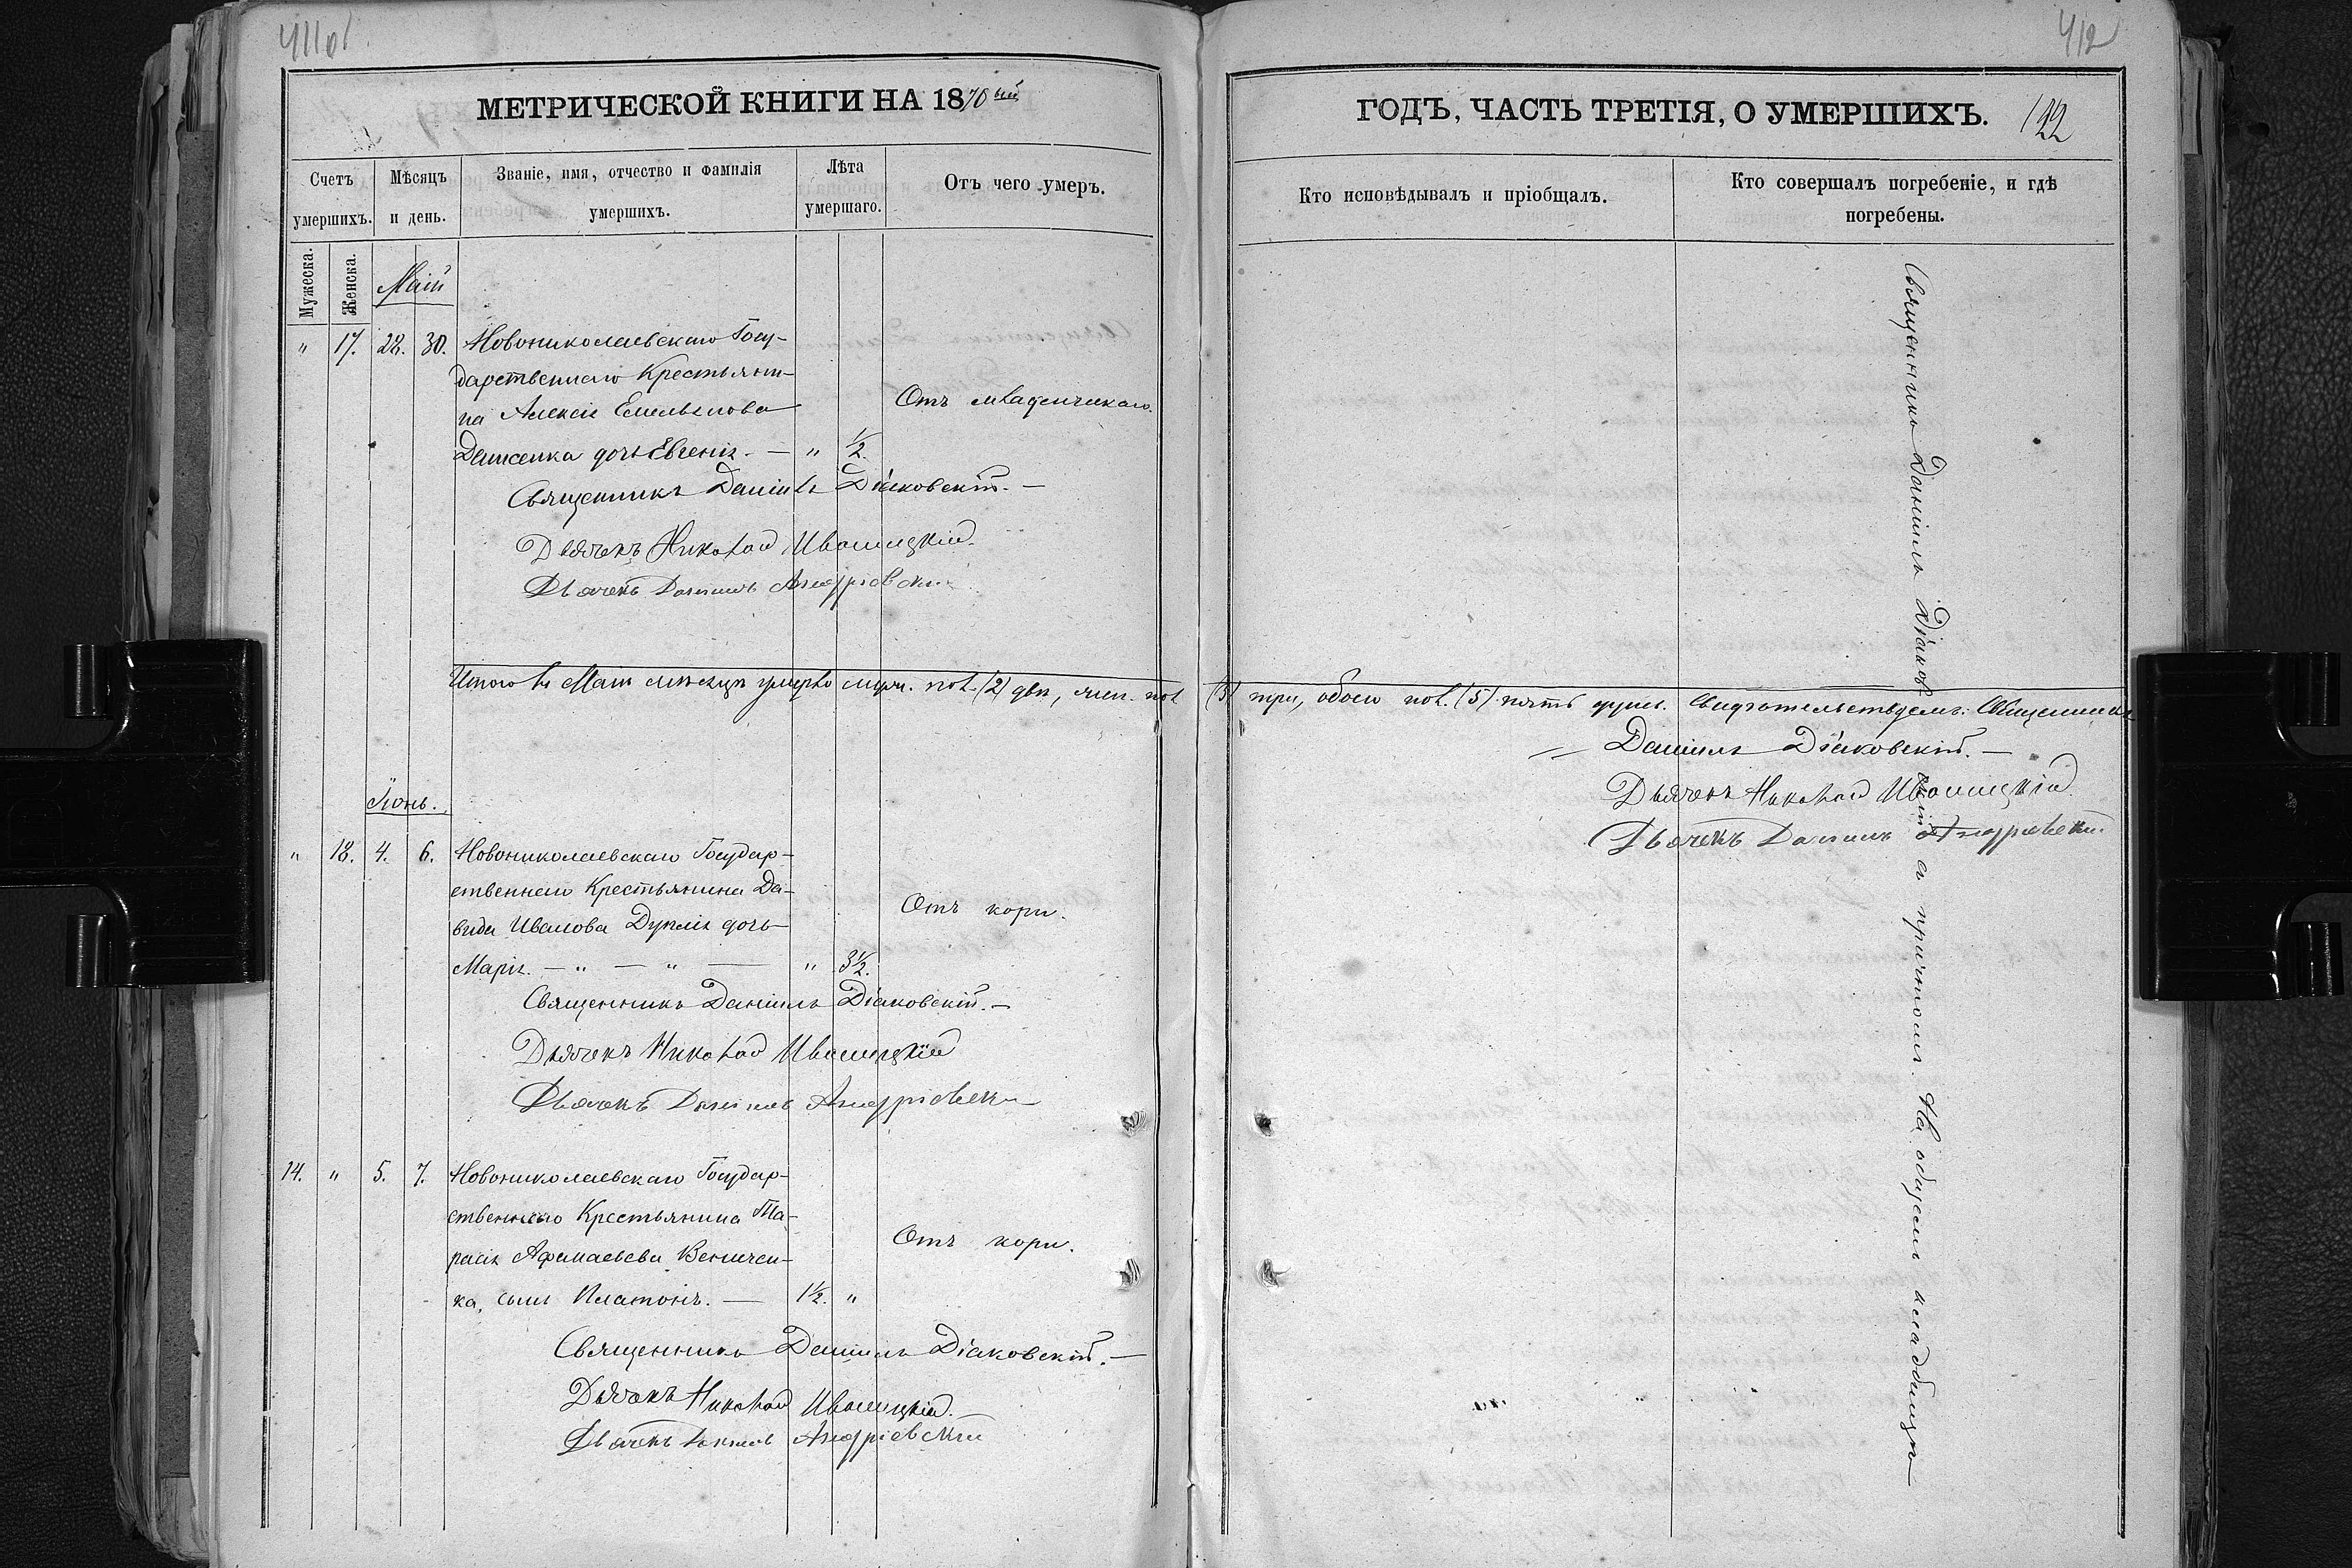 411об.
МЕТРИЧЕСКОЙ КНИГИ НА 1870ый
Счетъ умершихъ.
Мѣсяцъ и день.
Званіе, имя, отчество и фамилія умершихъ.
Лѣта умершаго.
Отъ чего умеръ.
Мужеска.
Женска.
Маій
" 17. 28. 30. Новониколаевскаго Госу-
дарственнаго Крестьяни-
на Алексія Емельянова
Отъ младенчискаго.
Денисенка дочь Евгенія. — " 1/2.
Священникъ Даніилъ Діаковскій. —
Дьячекъ Николай Ивашицкій.
Дьячекъ Даніилъ Андріевскій
Итого въ Маіи мѣсяцѣ умерло муж. пол. (2) два, жен. пол
Іюнь.
" 18. 4. 6. Новониколаевскаго Государ-
ственнаго Крестьянина Да-
вида Иванова дочь
Отъ кори.
Марія. — " — " — " 3½.
Священникъ Даніилъ Діаковскій. —
Дьячекъ Николай Ивашицкій
Дьячекъ Даніилъ Андріевскій
14. " 5. 7. Новониколаевскаго Государ-
ственнаго Крестьянина Та-
расія
Отъ кори.
ка, сынъ Платонъ. — 1½. "
Священникъ Даніилъ Діаковскій. —
Дьячекъ Николай Ивашицкій.
Дьячекъ Даніилъ Андріевскій
412
ГОДЪ, ЧАСТЬ ТРЕТІЯ, О УМЕРШИХЪ.
122
Кто исповѣдывалъ и пріобщалъ.
Кто совершалъ погребеніе, и гдѣ погребены.
(3) три, обоего пол. (5) пять душъ. Священникъ
Даніилъ Діаковскій. —
Дьячекъ Николай Ивашицкій
Дьячекъ Даніилъ Андріевскій
Священникъ Даніилъ Діаковскій съ причтомъ. На общемъ кладбищѣ